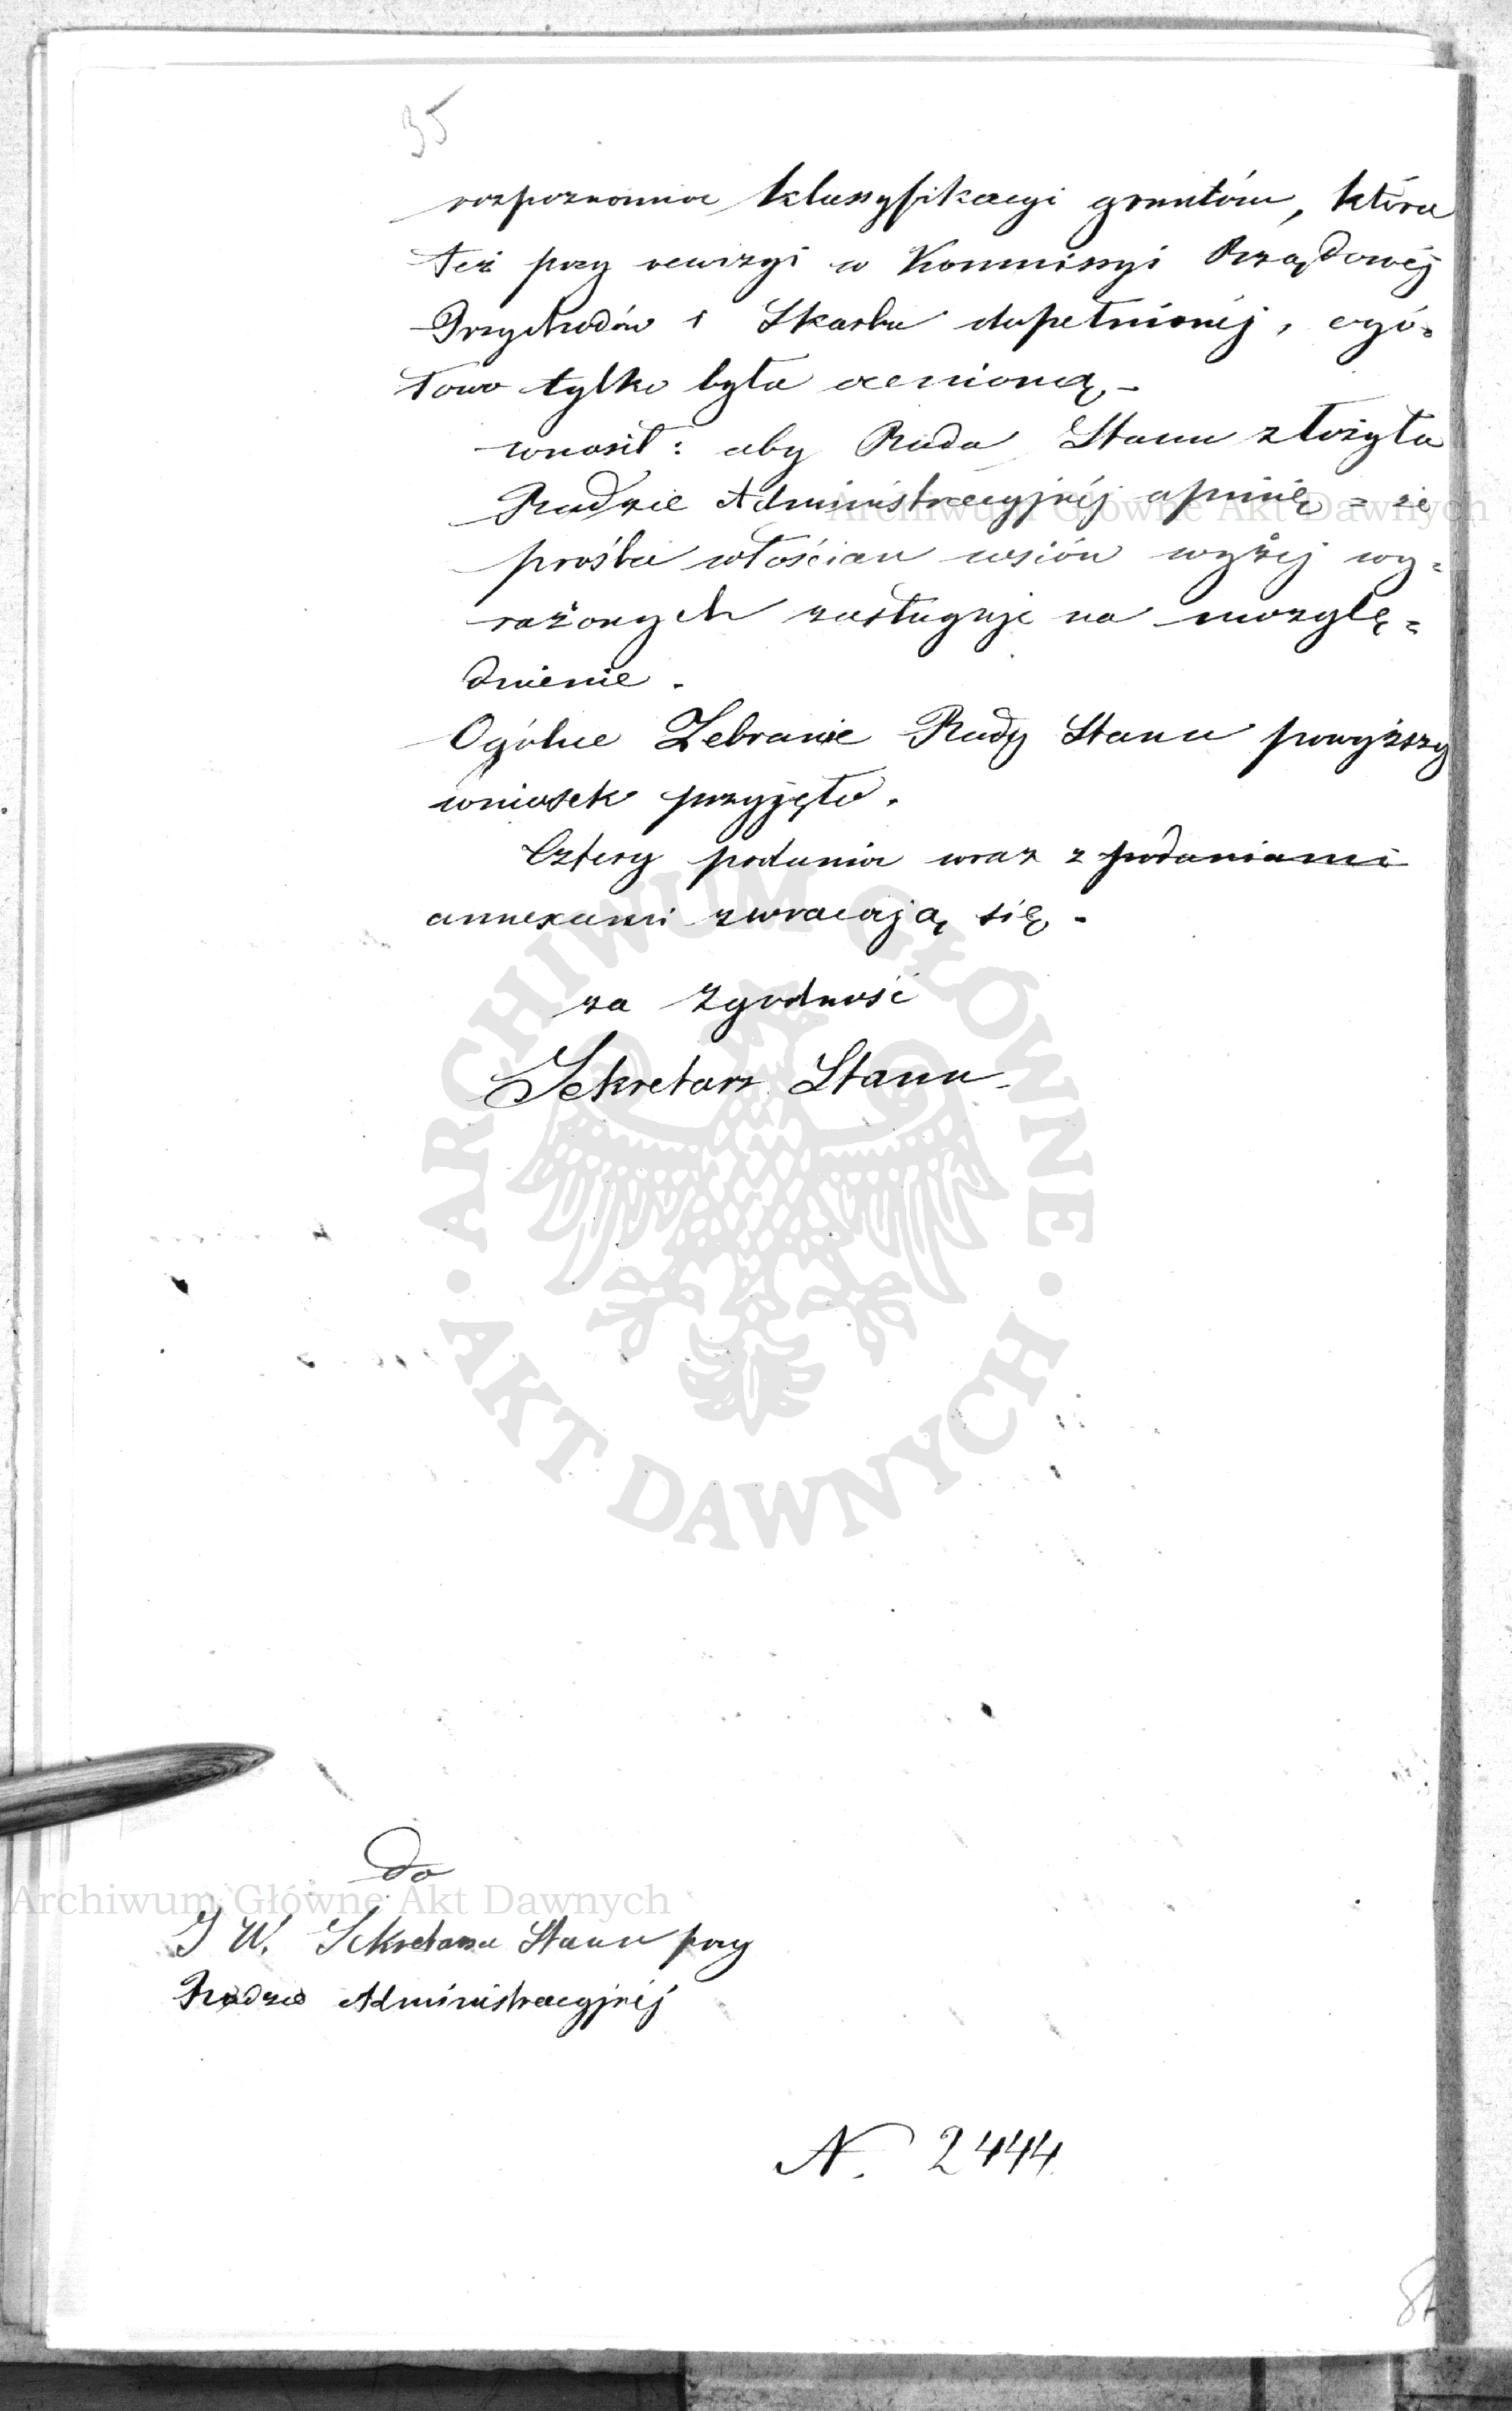 35
rozpoznania klassyfikacyi gruntów, która
też przy rewizyi w Kommissyi Rządowéj
Przychodów i Skarbu dopełnionéj, ogó=
łowo tylko była ocenioną -
wnosił: aby Rada Stanu złożyła
Radzie Administracyjnéj opinię = że
prośba włościan wsiów wyżéj wy=
rażonych zasługuje na uwzglę=
dnienie.
Ogólne Zebranie Rady Stanu powyższy
wniosek przyjęło.
Cztery podania wraz z podaniami
annexami zwracają się.
za zgodność
Sekretarz Stanu
do
J W. Sekretarza Stanu przy
Radzie Administracyjnéj
N. 2444
Archiwum Główne Akt Dawnych
Archiwum Główne Akt Dawnych
ARCHIWUM GŁÓWNE · AKT DAWNYCH ·